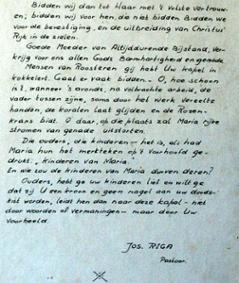 Bidden wij dan tot Haar met 't volste vertrouw-
en; bidden wij voor hen, die niet bidden Bidden we
voor de bevestiging, en de uitbreiding van Christus'
Rijk in de zielen.
Goede Moeder van Altijddurende Bijstand, Ver-
krijg voor ons allen Gods Barmhartigheid en genade
Mensen van Roosteren gij hebt Uw kapel in
Kokkelert. Gaat er vaak bidden - O, hoe schoon
is 't, wanneer 's avonds, na volbrachte arbeid, de
vader tussen zijne, soms door het werk vereelte
handen, de koralen laat glijden en de Rozen-
krans bidt. O daar, op die plaats zal Maria rijke
stromen van genade uitstorten.
Die ouders, die kinderen - het is, als had
Maria hun het merkteken op 't voorhoofd ge-
drukt, "kinderen van Maria".
En wie zou de kinderen van Maria durven deren?
Ouders, hebt ge uw kinderen lief en wilt ge
dat zij U een kroon en geen nagel aan uw doods-
kist worden, leidt hen dan naar deze kapel - niet
door woorden of vermaningen - maar door Uw
voorbeeld.
Jos. RIGA
Pastoor.